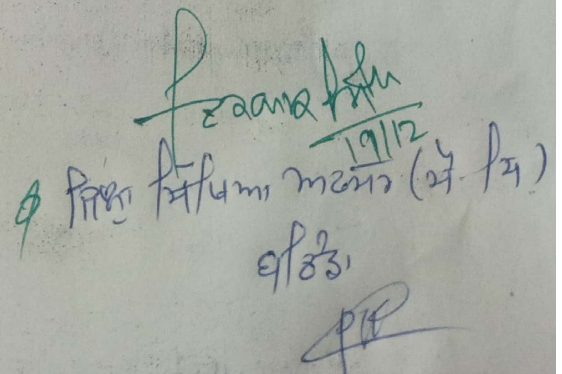 ਸਿੰਘ
19/12
ਜਿਲ੍ਹਾ ਸਿੱਖਿਆ ਅਫਸਰ (ਸੈ. ਸਿ)
ਬਠਿੰਡਾ